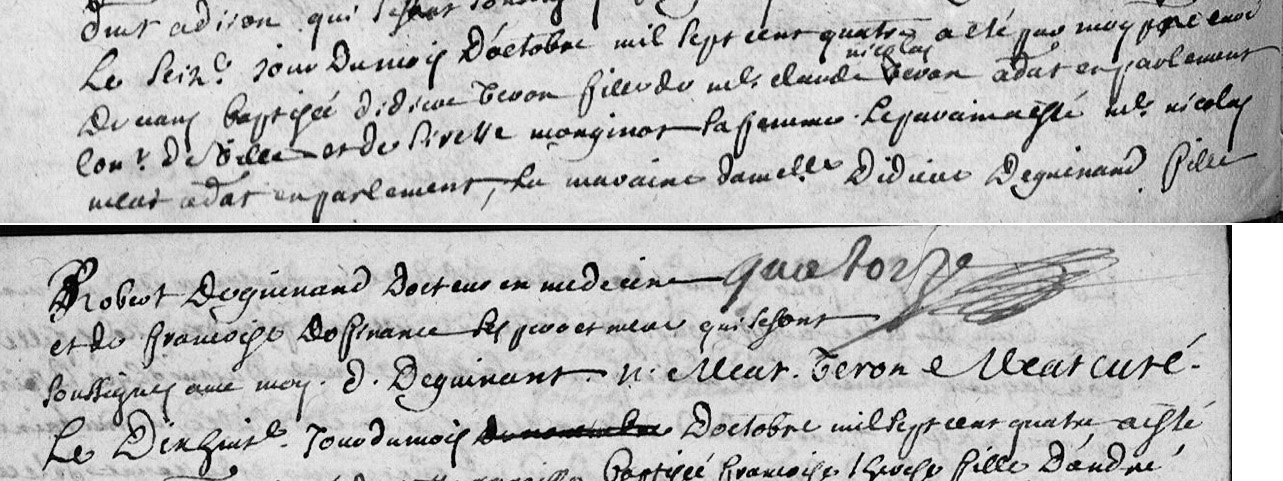 qui se sont
Le seize jour du mois d'octobre mil sept cent quatre a esté par moy pre curé
baptisée didiere Teron fille de me. claude nicolas Teron adat en parlement
et de monginot sa femme. Le parain a esté me. nicolas
meat adat en parlement, La maraine damelle Didiere Deguinand fille
Robert Deguinand Docteur en medecine quatorze
et de francoise Dofrance ses pere et mere qui se sont
soussignes avec moy. d. Deguinant. n. Meat. Teron Meat curé.
Le Dixhuite. Jour du mois Doctobre mil sept cent quatre a esté
baptisée francoise fille Dandré